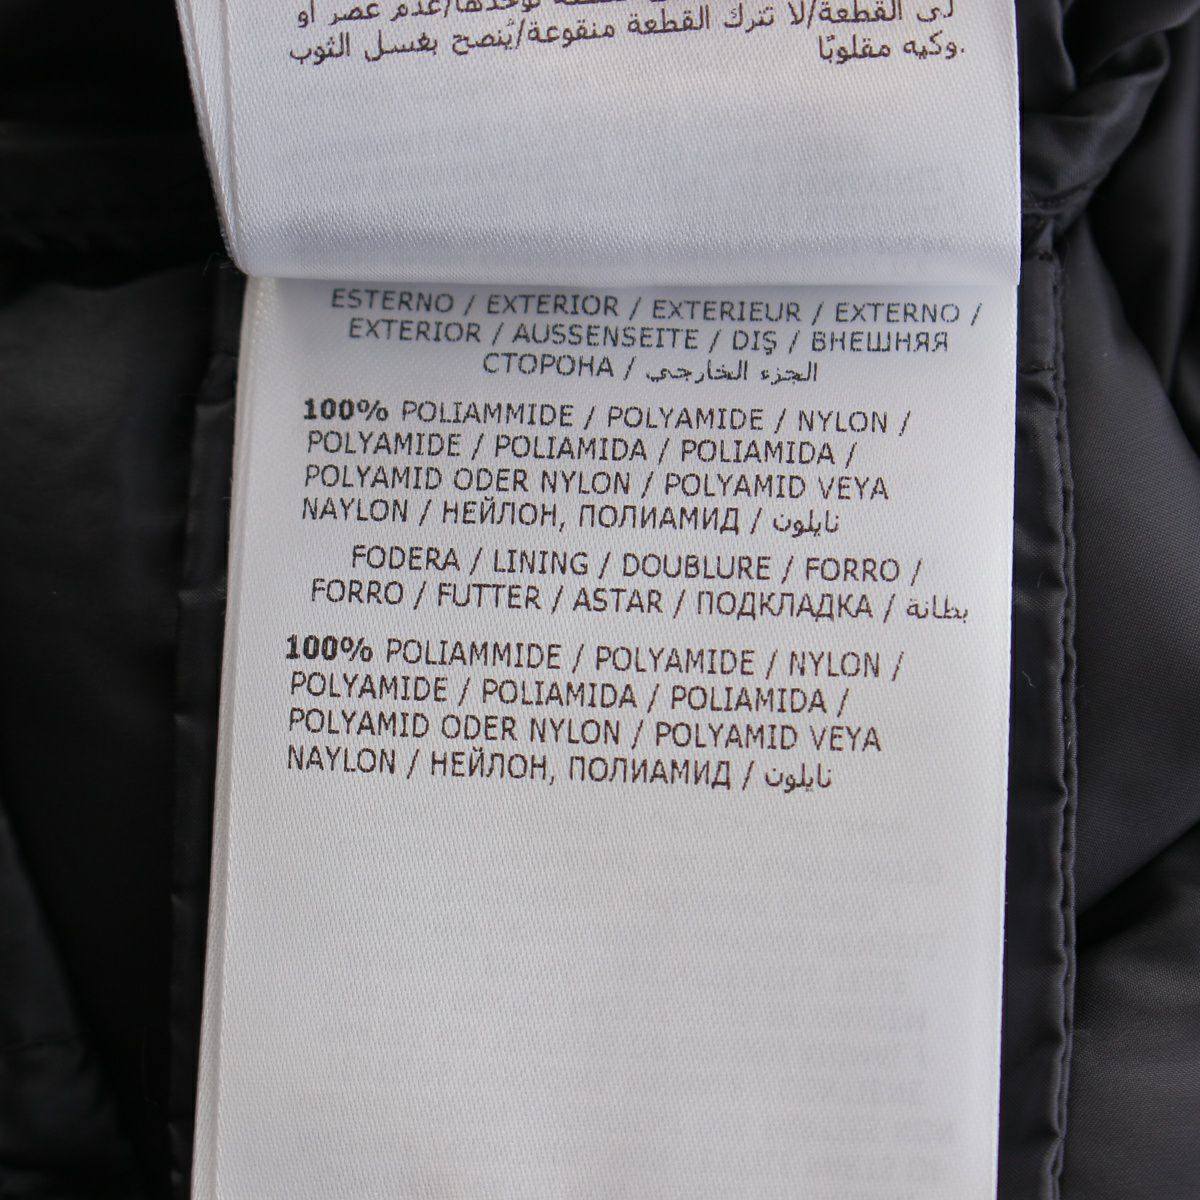 لى القطعة/لا تترك القطعة منقوعة/يُنصح بغسل الثوب
وكيه مقلوبًا.
ESTERNO / EXTERIOR / EXTERIEUR / EXTERNO /
EXTERIOR / AUSSENSEITE / DIŞ / ВНЕШНЯЯ
СТОРОНА / الجزء الخارجي
100% POLIAMMIDE / POLYAMIDE / NYLON /
POLYAMIDE / POLIAMIDA / POLIAMIDA /
POLYAMID ODER NYLON / POLYAMID VEYA
NAYLON / НЕЙЛОН, ПОЛИАМИД / نايلون
FODERA / LINING / DOUBLURE / FORRO /
FORRO / FUTTER / ASTAR / ПОДКЛАДКА / بطانة
100% POLIAMMIDE / POLYAMIDE / NYLON /
POLYAMIDE / POLIAMIDA / POLIAMIDA /
POLYAMID ODER NYLON / POLYAMID VEYA
NAYLON / НЕЙЛОН, ПОЛИАМИД / نايلون